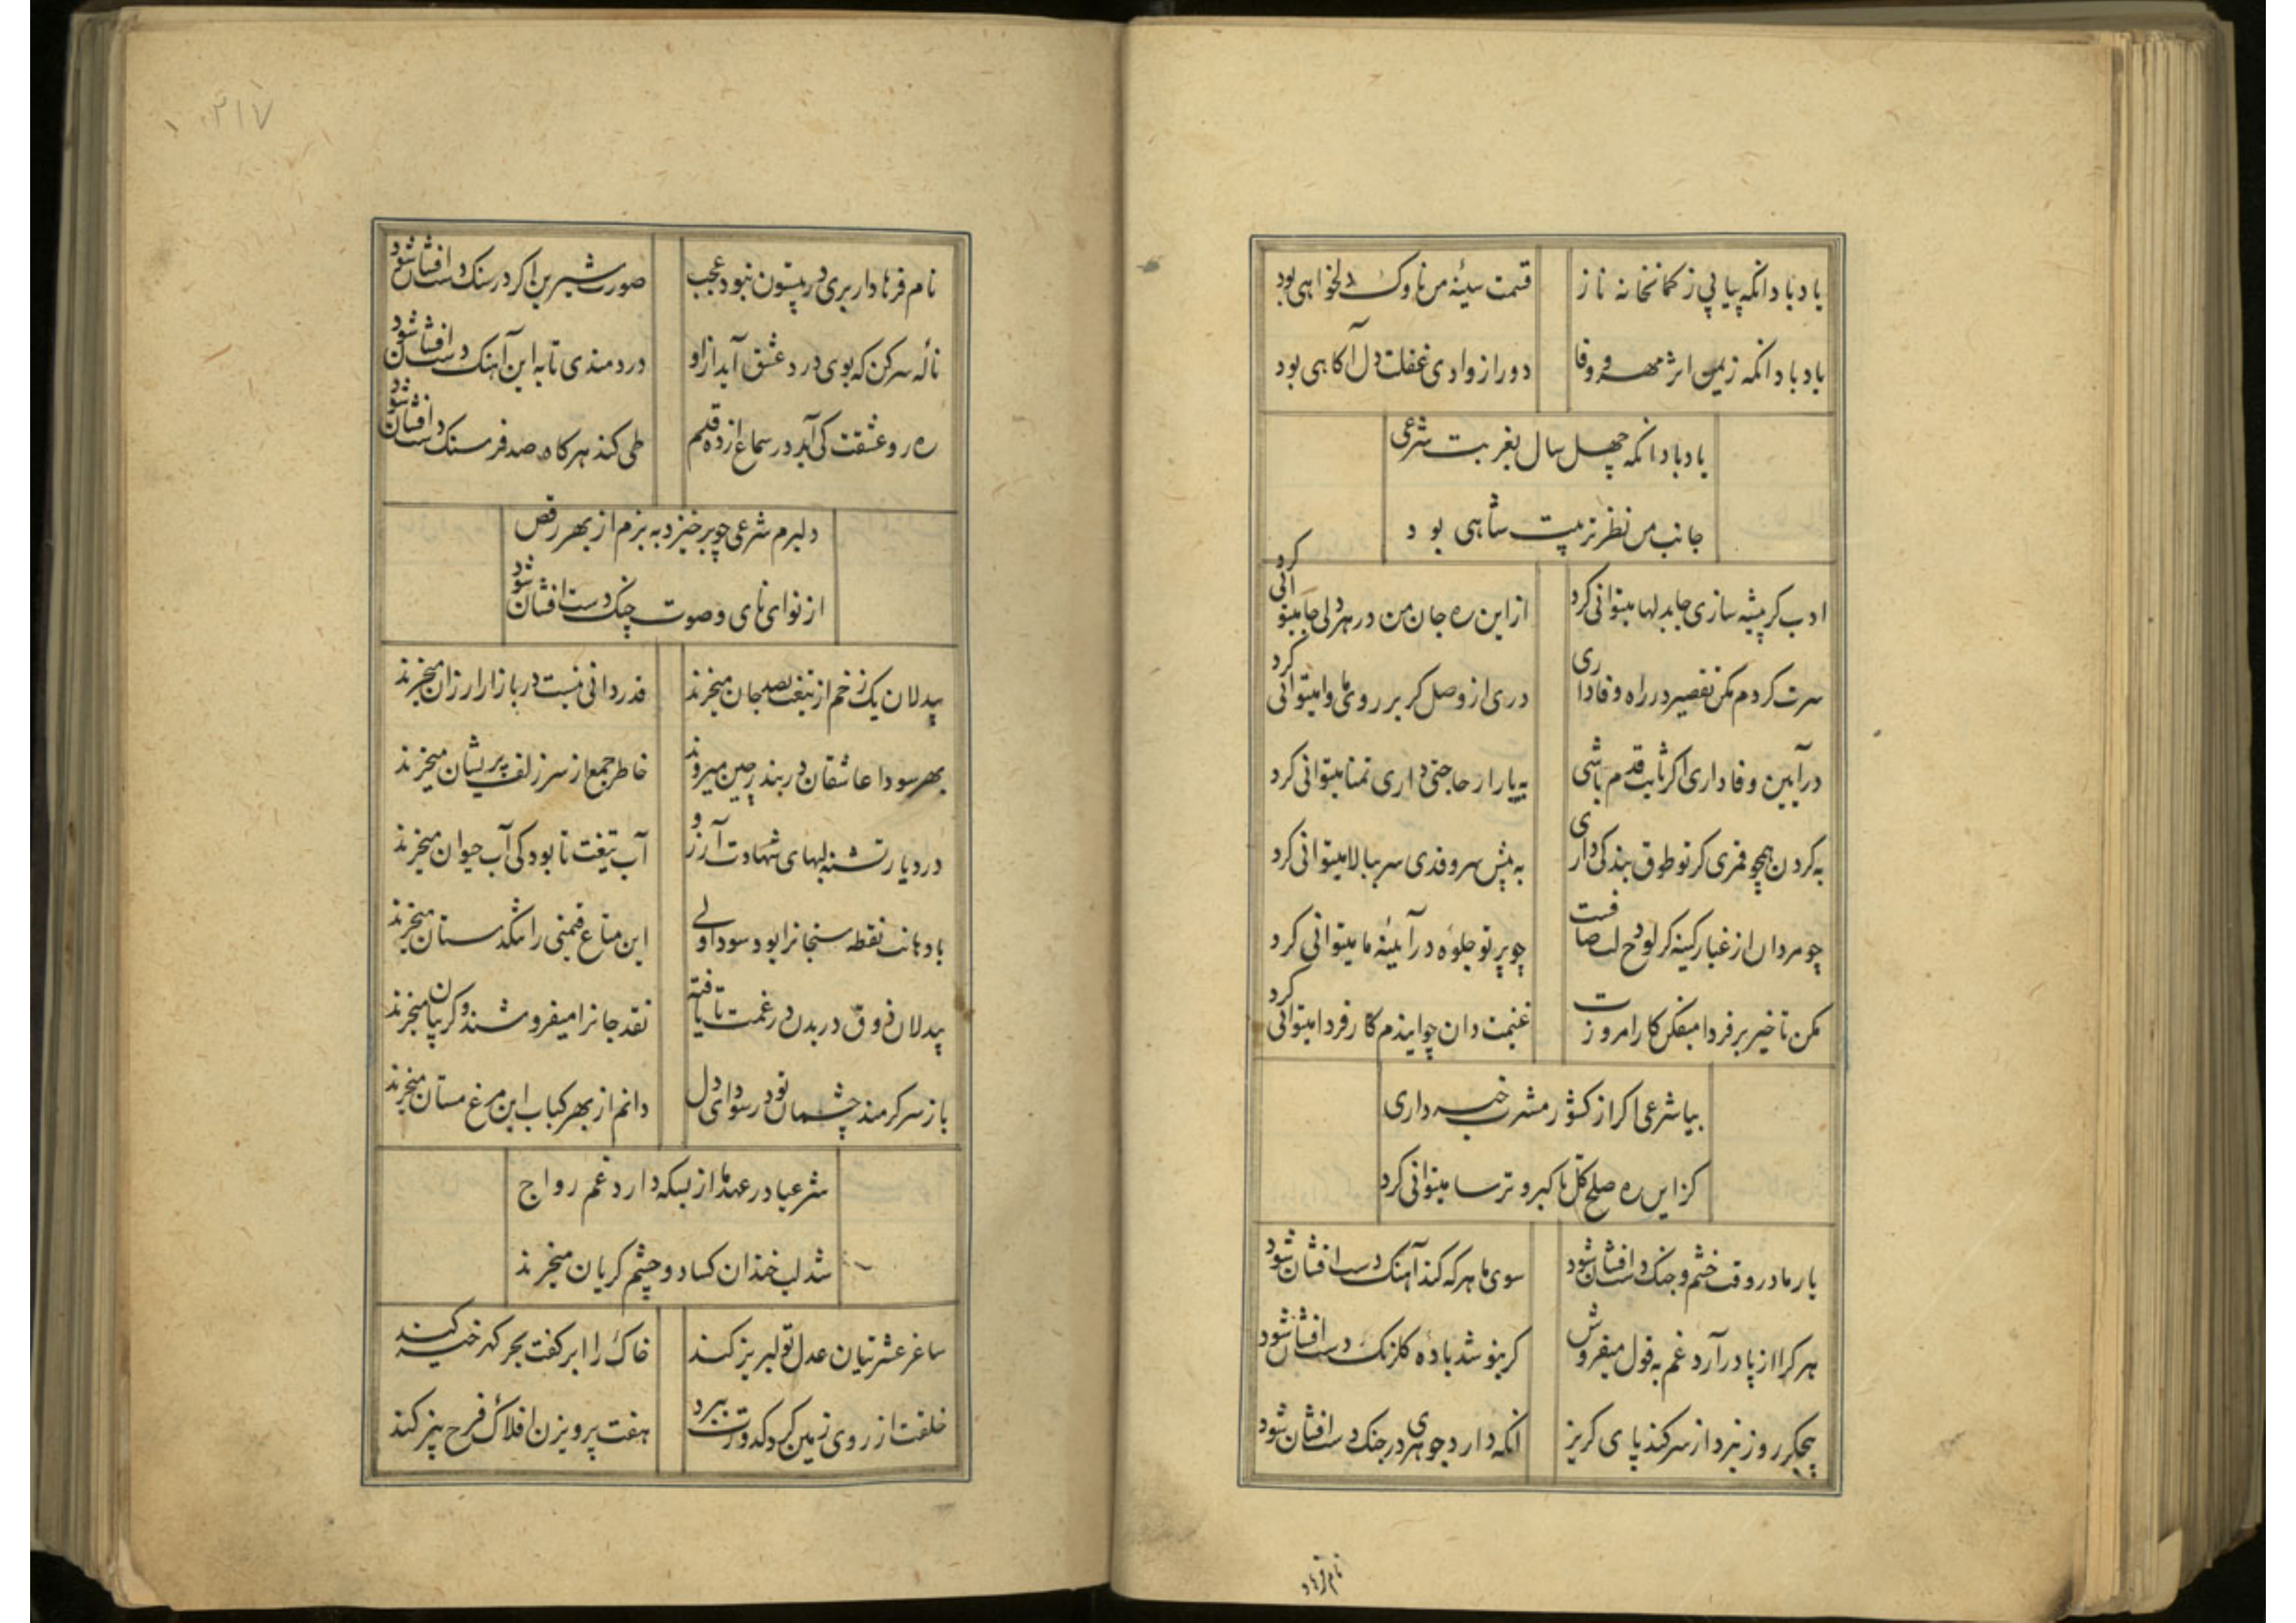 یاد باد انکه پیاپی ز کمانخانه ناز قسمت سینه من ناوک دلخواهی بود
یاد باد انکه زمین اثر مهر و وفا دور از وادی غفلت دل آکاهی بود
یاد باد انکه چهل سال بغربت شرعی
جانب من نظر تربیت شاهی بود
ادب کر پیشه سازی جا بدلها میتوانی کرد از این ره جان من در هر دلی جا میتوانی کرد
سرت کردم مکن تقصیر در راه وفاداری دری از وصل کر بر روی ما وا میتوانی کرد
در آیین وفاداری اکر ثابت قدم باشی به یار ار حاجتی داری تمنا میتوانی کرد
به کردن همچو قمری کر تو طوق بندکی داری به پیش سرو قدی سر ببالا میتوانی کرد
چو مردان از غبار کینه کر لوح دلت صافست چو پرتو جلوه در آیینه ما میتوانی کرد
مکن تاخیر بر فردا میفکن کار امروزت غنیمت دان چو ایندم کار فردا میتوانی کرد
بیا شرعی اکر از کشور مشرب خبر داری
کز این ره صلح کل با کبر و ترسا میتوانی کرد
یار ما در وقت خشم و جنک دست افشان شود سوی ما هر که کند آهنک دست افشان شود
هر کرا از پا در آرد غم به قول میفروش کر بنوشد باده کلرنک دست افشان شود
بیجکر روز نبرد از سر کند پای کریز انکه دارد جوهری در جنک دست افشان شود
نام فرهاد
۲۱۷
نام فرهاد ار بری در بیستون نبود عجب صورت شیرین اکر در سنک دست افشان شود
ناله سر کن که بوی درد عشق آید از او دردمندی تا به این آهنک دست افشان شود
ره رو عشقت کی آید در سماع از ده قدم طی کند هر کاه صد فرسنک دست افشان شود
دلبرم شرعی چو برخیزد به بزم از بهر رقص
از نوای نای و صوت چنک دست افشان شود
بیدلان یک زخم از تیغت بصد جان میخرند قدردانی نیست در بازار ارزان میخرند
بهر سودا عاشقان در بندر چین میروند خاطر جمع از سر زلف پریشان میخرند
در دیار تشنه لبهای شهادت آرزو آب تیغت تا بود کی آب حیوان میخرند
با دهانت نقطه سنجانرا بود سودا ولی این متاع قیمتی را تنکدستان میخرند
بیدلان ذوق دریدن در غمت تا یافته نقد جانرا میفروشند و کریبان میخرند
باز سر کرمند چشمان تو در سودای دل دانم از بهر کباب این مرغ مستان میخرند
شرعیا در عهد ما از بسکه دارد غم رواج
شد لب خندان کساد و چشم کریان میخرند
ساغر عشرتیان عدل تو لبریز کند خاک را ابر کفت بحر کهر خیز کند
خلقت از روی زمین کرد کدورت ببرد هفت پرویزن افلاک فرح بیز کند